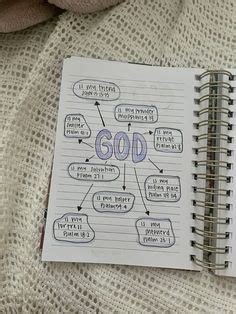 is my friend
John 15:15
is my provider
Philippians 4:19
is my
healer
Psalm
is my refuge
Psalm 62:8
GOD
is my salvation
Psalm 27:1
is my
hiding place
Psalm
is my helper
Psalm 54:4
is my
fortress
Psalm 18:2
is my
shepherd
Psalm 23:1